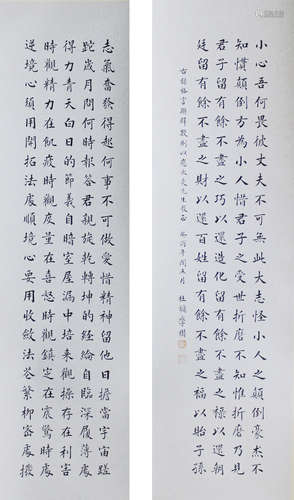 小心吾何畏彼丈夫不可無此大志怪小人之顛倒豪杰不
知慣顛倒方為小人惜君子之受世折磨不知惟折磨乃見
君子留有餘不盡之巧以還造化留有餘不盡之祿以還朝
廷留有餘不盡之財以還百姓留有餘不盡之福以貽子孫
右錄格言聯璧數則以應 先生 年 五月 杜
志氣奮發得起何事不可做愛惜精神留他日擔當宇宙蹉
跎歲月問何時報答君親旋乾轉坤的經綸自臨深履薄處
得力青天白日的節義自暗室屋漏中培來觀操存在利害
時觀精力在飢疲時觀度量在喜怒時觀鎮定在震驚時處
逆境心須用開拓法處順境心要用收斂法 繁柳密處撥